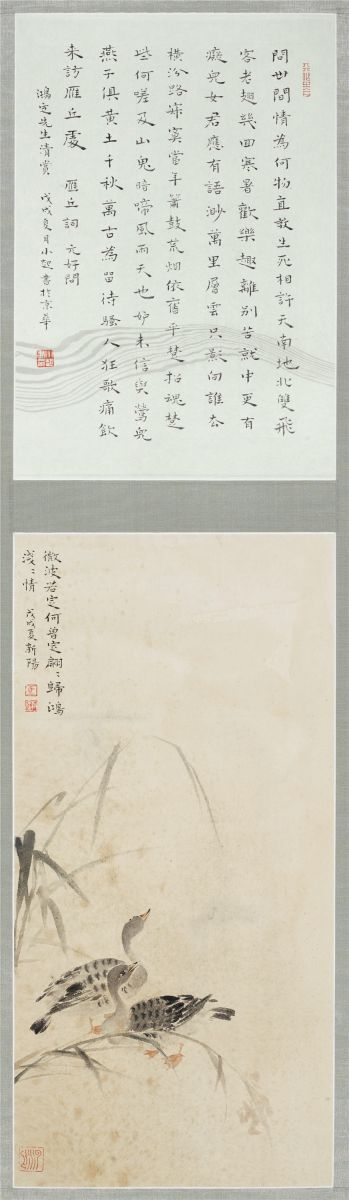 問世間情為何物直教生死相許天南地北雙飛
客老翅幾回寒暑歡樂趣離別苦就中更有
癡兒女君應有語渺萬里層雲只影向誰去
橫汾路寂寞當年簫鼓荒烟依舊平楚招魂楚
些何嗟及山鬼暗啼風雨天也妒未信與鶯兒
燕子俱黃土千秋萬古為留待騷人狂歌痛飲
來訪雁丘處 雁丘詞 元好問
鴻定先生清賞 戊戌夏月小起書於京華
微波若定何曾定翩〻歸鴻
淺〻情 戊戌夏新陽